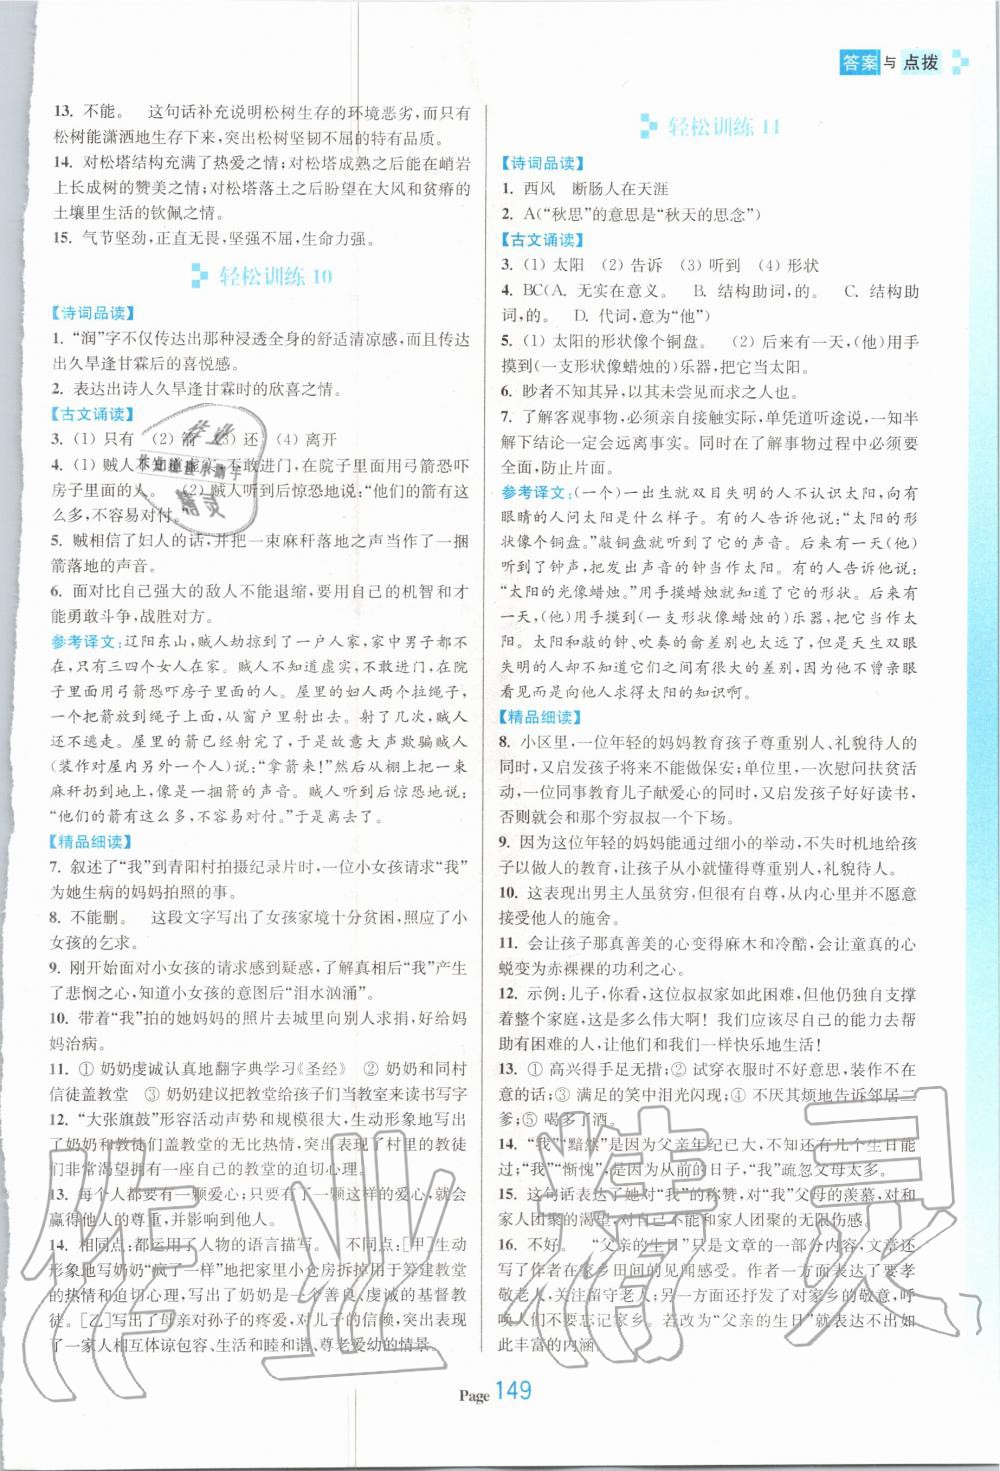 答案与点拨
13. 不能。　这句话补充说明松树生存的环境恶劣,而只有
松树能潇洒地生存下来,突出松树坚韧不屈的高尚品质。
14. 对松塔结构充满了热爱之情;对松塔成熟之后能在峭岩
上长成树的赞美之情;对松塔落土之后盼望在大风和贫瘠的
土壤里生活的钦佩之情。
15. 气节坚劲,正直无畏,坚强不屈,生命力强。
轻松训练 10
【诗词品读】
1. “润”字不仅传达出那种浸透全身的舒适清凉感,而且传
达出久旱逢甘霖后的喜悦感。
2. 表达出诗人久旱逢甘霖时的欣喜之情。
【古文诵读】
3. (1) 只有　(2) 箭　(3) 还　(4) 离开
4. (1) 贼人不知道虚实,不敢进门,在院子里用弓箭恐吓
房子里的人。　(2) 贼人后惊恐地说:“他们的箭有这
么多,不容易对付。”
5. 贼相信了妇人的话,并把一束麻秆落地之声当作了一捆
箭落地的声音。
6. 面对比自己强大的敌人不能退缩,要用自己的机智和才
能勇敢斗争,战胜对方。
参考译文:辽阳东山,贼人劫掠到了一户人家,家中男子都不
在,只有三四个女人在家。贼人不知道虚实,不敢进门,在院
子里用弓箭恐吓房子里的人。屋里的妇人两个拉绳子,一
个把箭安在绳子上,从窗户里射出去。射了几次,贼人
还不逃走。屋里的箭已经射完了,于是故意大声欺骗贼人
(装作对屋内另外的人)说:“拿箭来!”然后从棚上把一束
麻秆扔到地上,像是一捆箭的声音。贼人后惊恐地说:
“他们的箭有这么多,不容易对付。”于是离去了。
【精品细读】
7. 叙述了“我”到青阳村拍摄纪录片时,一位小女孩请求“我”
为她生病的妈妈拍照的事。
8. 不能删。　这段文字写出了女孩家境十分贫困,照应了小
女孩的乞求。
9. 刚开始面对小女孩的请求感到疑惑,了解真相后“我”产生
了悲悯之心,知道小女孩的意图后“泪水汹涌”。
10. 带着“我”拍的她妈妈的照片去城里向别人求捐,好给妈
妈治病。
11. ① 奶奶虔诚认真地翻字典学习《圣经》　② 奶奶和同村
信徒盖教堂　③ 奶奶建议把教堂给孩子们当教室来读书写字
12. “大张旗鼓”形容活动声势和规模很大,生动形象地写出
了奶奶和教徒们盖教堂的无比热情,突出表现了村里的教徒
们非常渴望拥有自己的教堂的迫切心理。
13. 每个人都要有一颗爱心;只要有了一颗这样的爱心,就会
赢得他人的尊重,并影响到他人。
14. 相同点:都运用了人物的语言描写。　不同点:[甲]生动
形象地写奶奶“疯了一样”地把家里小仓房拆掉用于筹建教堂
的热情和迫切心理,突出了奶奶是一个善良、虔诚的基督教
徒。[乙]写出了母亲对孙子的疼爱,对儿子的信赖,突出表现
了一家人相互体谅包容、生活和睦和谐、尊老爱幼的情景。
轻松训练 11
【诗词品读】
1. 西风　断肠人在天涯
2. A(“秋思”的意思是“秋天的思念”)
【古文诵读】
3. (1) 太阳　(2) 告诉　(3) 敲击　(4) 形状
4. BC(A. 无实在意义。　B. 结构助词,的。　C. 结构助
词,的。　D. 代词,意为“他”)
5. (1) 太阳的形状像个铜盘。　(2) 后来有一天,(他)用手
摸到(一支形状像蜡烛的)乐器,把它当太阳。
6. 眇者不知其异,以其未尝见而求之人也。
7. 了解客观事物,必须亲自接触实际,单凭道听途说,一知半
解下结论一定会远离事实。同时在了解事物过程中必须要
全面,防止片面。
参考译文:(一个)一出生就双目失明的不认识太阳,向有
眼睛的人问太阳是什么样子。有的人告诉他说:“太阳的形
状像个铜盘。”敲铜盘就听到了它的声音。后来有一天(他)
听到了钟声,把发出声音的钟当作太阳。有的人告诉他说:
“太阳的光像蜡烛。”用手摸蜡烛就知道了它的形状。后来有
一天,(他)用手摸到(一支形状像蜡烛的)乐器,把它当作太
阳。太阳和敲的钟、吹奏的龠差别也大呢,但是天生双眼
失明的人却不知道它们之间有很大的差别,因为他不曾亲眼
看见而是向他人求得太阳的知识啊。
【精品细读】
8. 小区里,一位年轻的妈妈教育孩子尊重别人、礼貌待人的
同时,又启发孩子将来不能做保安;单位里,一次慰问扶贫活
动中,一位同事教育儿子献爱心的同时,又启发孩子好好读书,
否则就会和那个穷叔叔一个下场。
9. 因为这位年轻的妈妈能通过细小的举动,不失时机地给孩
子以做人的教育,让孩子从小就知道尊重别人,礼貌待人。
10. 这表现出男主人虽贫穷,但很有自尊,从内心里并不愿意
接受他人的施舍。
11. 会让孩子那真善美的心变得麻木和冷酷,会让童真的心
蜕变为赤裸裸的功利之心。
12. 示例:儿子,你看,这位叔叔家如此困难,但他仍独自支撑
着整个家庭,这是多么伟大啊!我们应该尽自己的能力去帮助
有困难的人,让他们和我们一样快乐地生活!
13. ① 高兴得手足无措;② 试穿衣服时不好意思,装作不在
意的话;③ 满足的笑中泪光闪现;④ 不厌其烦地告诉邻居二
爹;⑤ 喝多了酒。
14. “我”“黯然”是因为父亲年纪已大,不知还有几个生日能过
上;“我”“惭愧”,是因为从前的日子,“我”疏忽父母太多。
15. 这句话表达了她对“我”的称赞,对“我”父母的羡慕,对和
家人团聚的渴望,对自己不能和家人团聚的无限伤感。
16. 不好。　“父亲的生日”只是文章的一部分内容,文章
还写了作者在家乡田间的见闻感受。作者一方面表达了要孝
敬老人,关注留守老人;另一方面还抒发了对家乡的敬意,呼
唤人们不要忘记家乡。若改为“父亲的生日”就表达不出如
此丰富的内涵。
Page 149
作业精灵